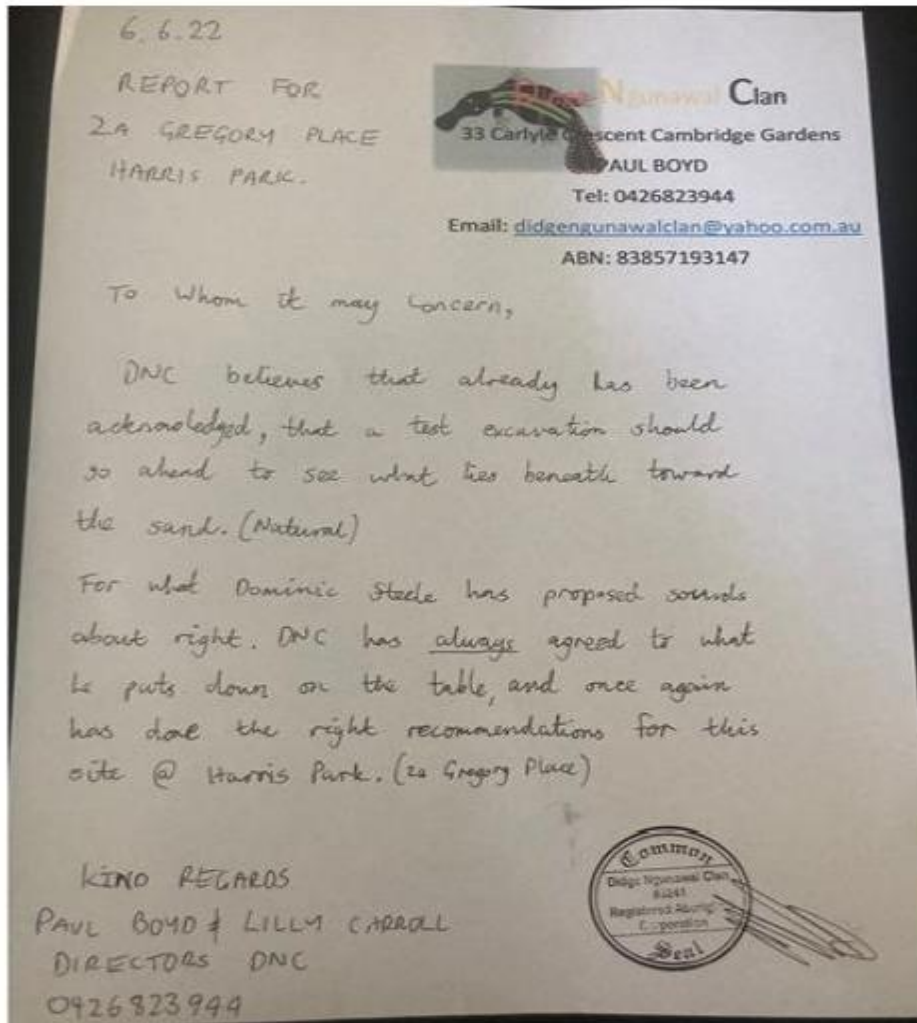 6.6.22
REPORT FOR
2A GREGORY PLACE
HARRIS PARK.
Ngunawal Clan
33 Carlyle Crescent Cambridge Gardens
PAUL BOYD
Tel: 0426823944
Email: didgengunawalclan@yahoo.com.au
ABN: 83857193147
To Whom it may Concern,
DNC believes that already has been
acknowledged, that a test excavation should
go ahead to see what lies beneath toward
the sand. (Natural)
For what Dominic Steele has proposed sounds
about right. DNC has always agreed to what
he puts down on the table, and once again
has done the right recommendations for this
site @ Harris Park. (2a Gregory Place)
KIND REGARDS
PAUL BOYD & LILLY CARROLL
DIRECTORS DNC
0426823944
Common
Didge Ngunawal Clan
Registered
Corporation
Seal